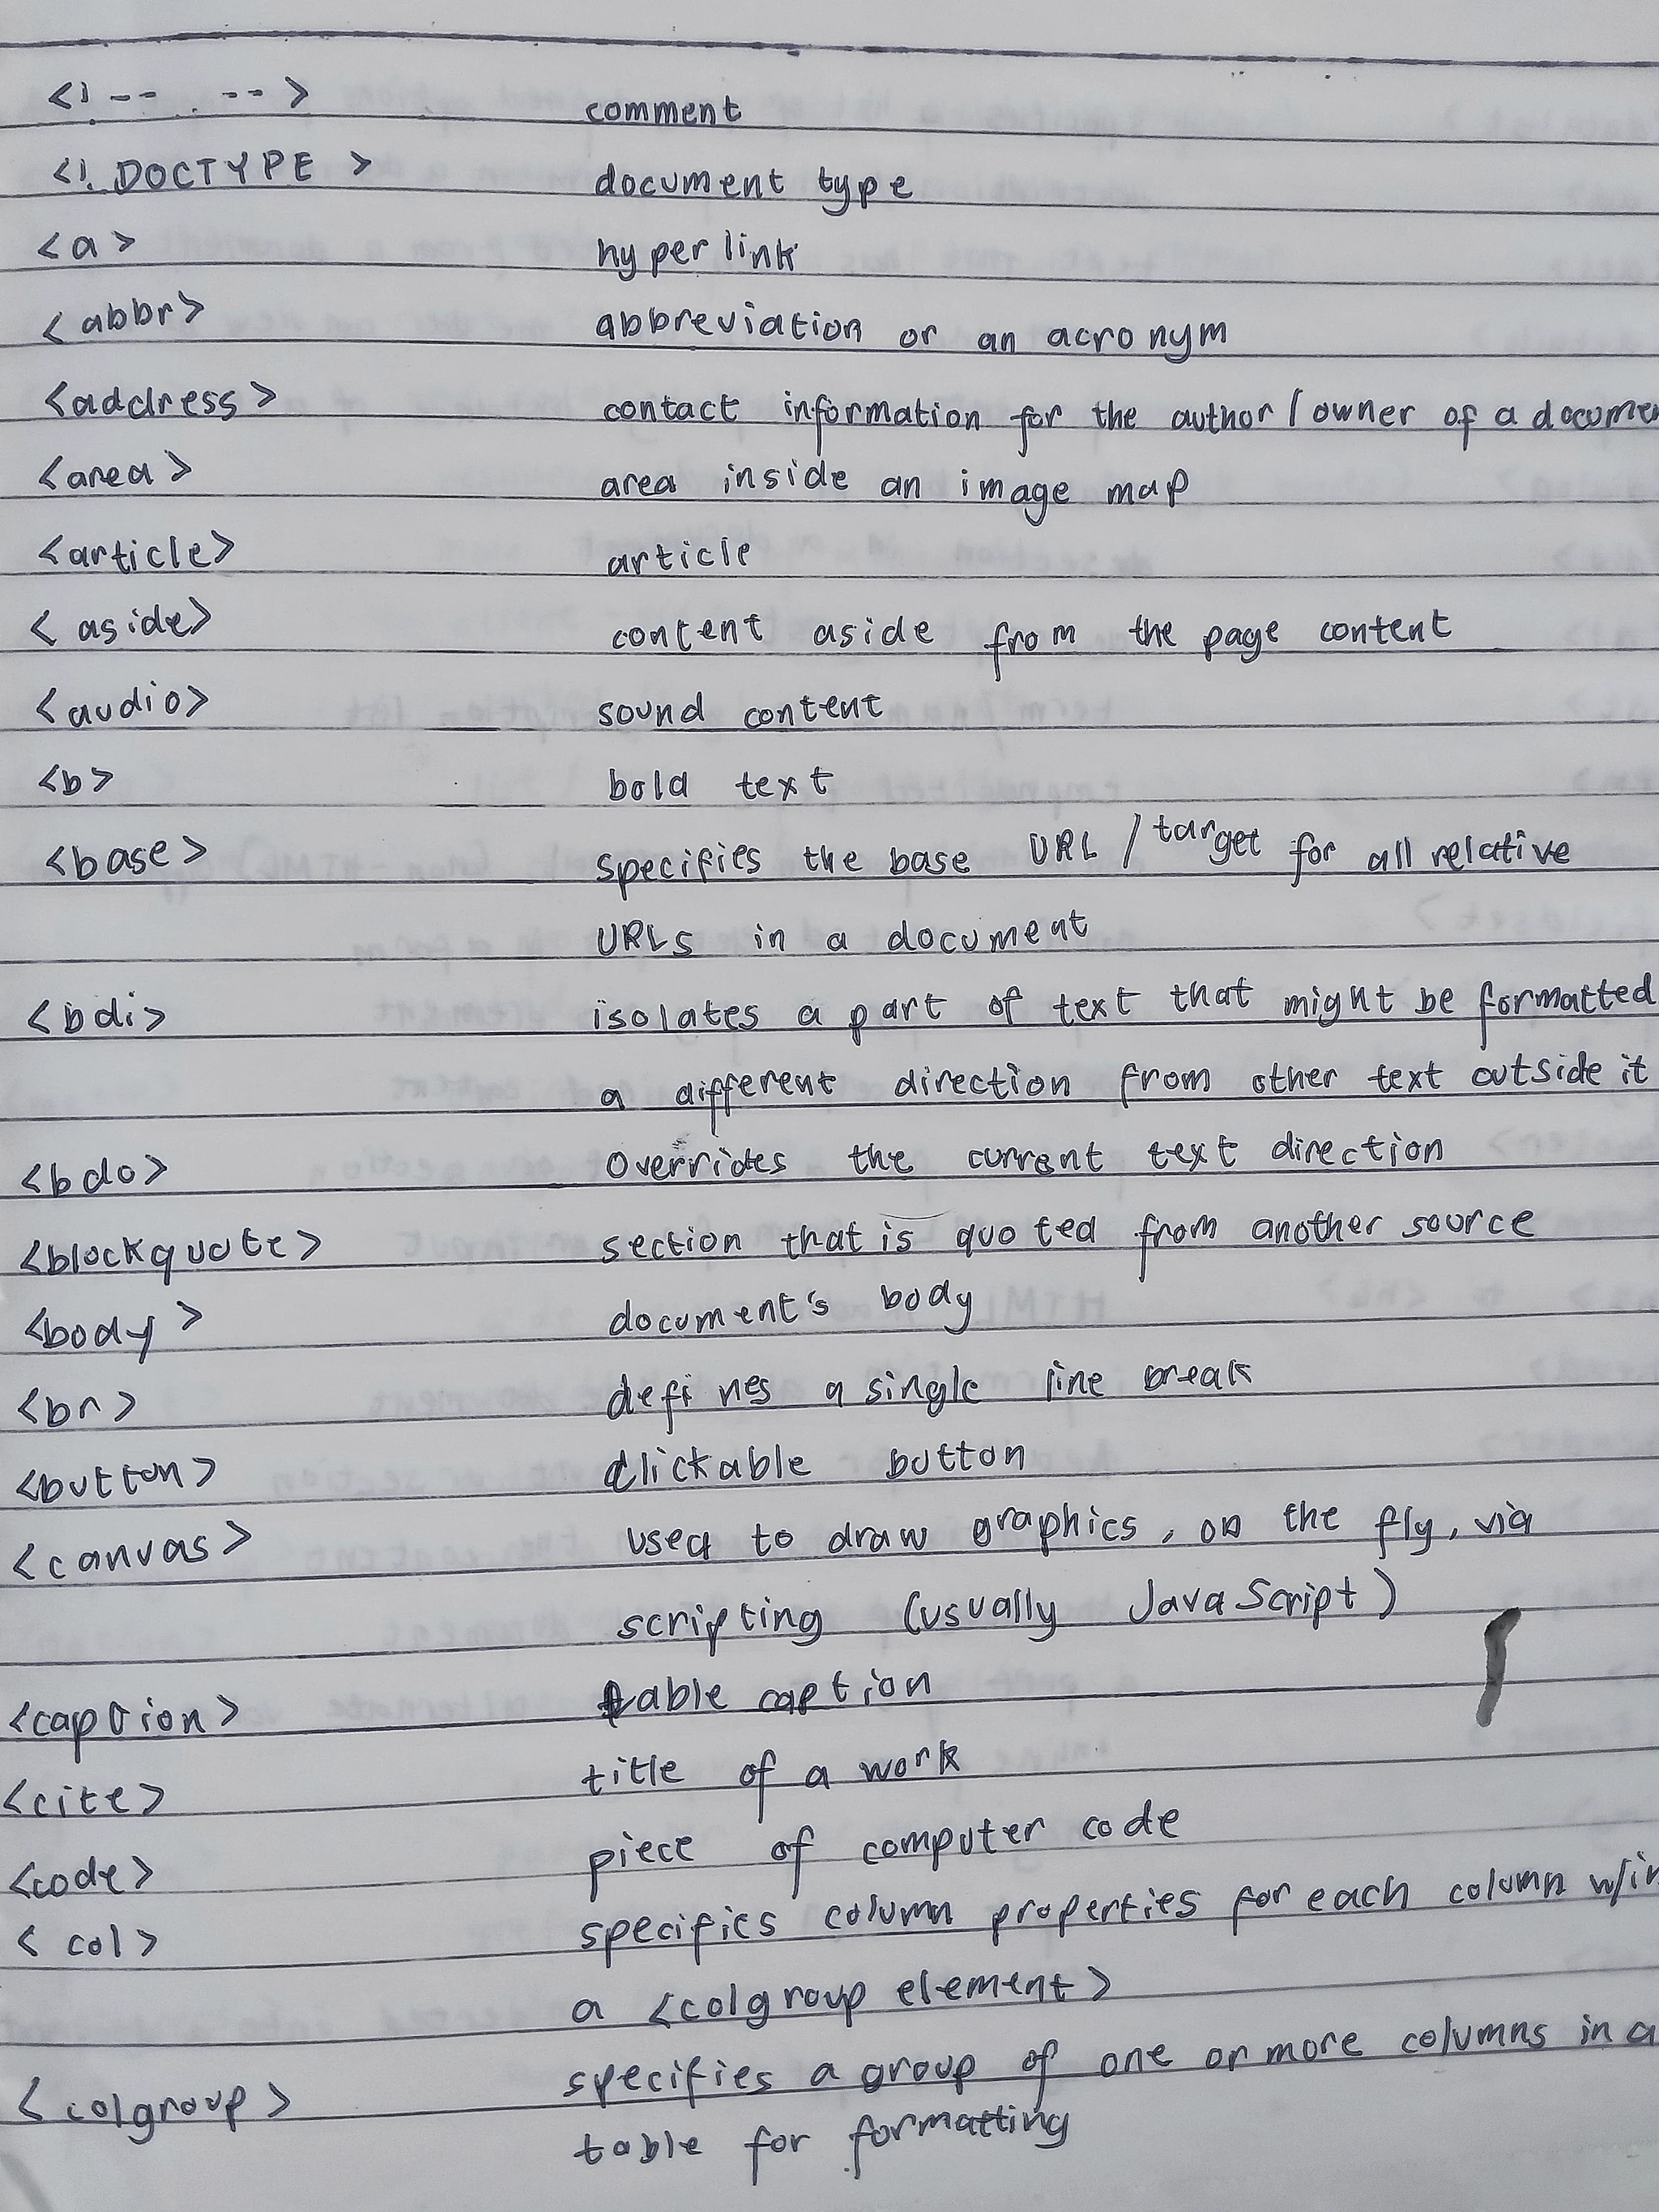 <!-- -->   comment
<! DOCTYPE >   document type
<a>   hyperlink
<abbr>   abbreviation or an acronym
<address>   contact information for the author/owner of a docume
<area>   area inside an image map
<article>   article
<aside>   content aside from the page content
<audio>   sound content
<b>   bold text
<base>   specifies the base URL / target for all relative
URLs in a document
<bdi>   isolates a part of text that might be formatted
a different direction from other text outside it
<bdo>   overrides the current text direction
<blockquote>   section that is quoted from another source
<body>   document's body
<br>   defines a single line break
<button>   clickable button
<canvas>   used to draw graphics, on the fly, via
scripting (usually JavaScript)
<caption>   table caption
<cite>   title of a work
<code>   piece of computer code
<col>   specifies column properties for each column w/in
a <colgroup element>
<colgroup>   specifies a group of one or more columns in a
table for formatting